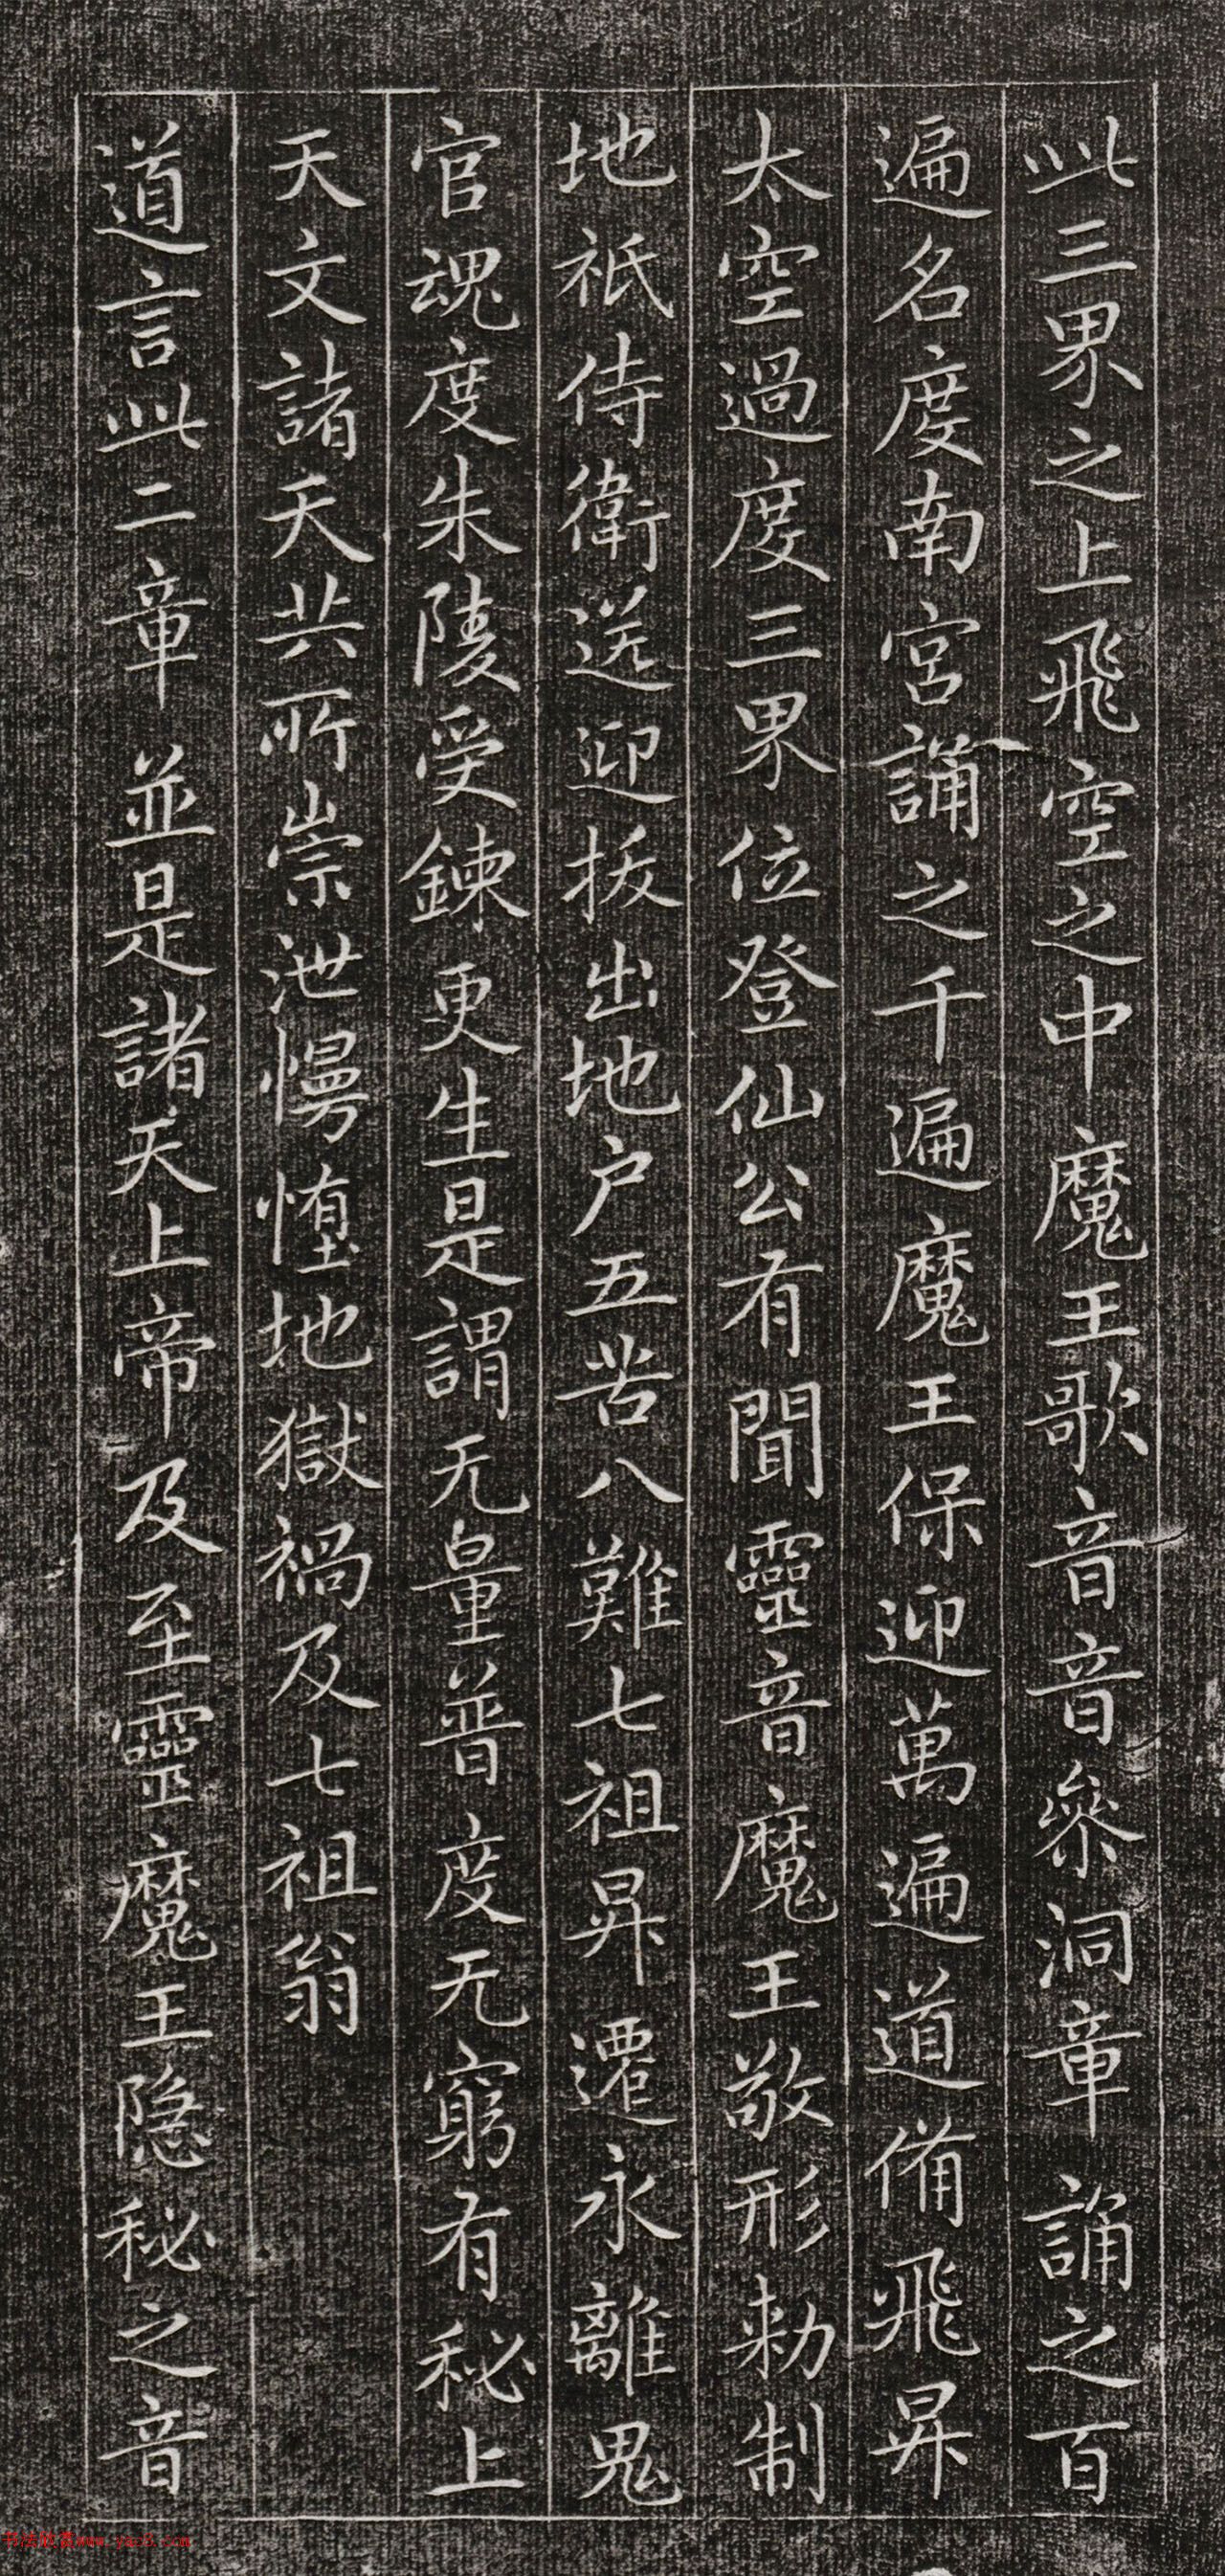 此三界之上飛空之中魔王歌音音參洞章誦之百
遍名度南宮誦之千遍魔王保迎萬遍道備飛昇
太空過度三界位登仙公有聞靈音魔王敬形勑制
地祇侍衛送迎拔出地户五苦八難七祖昇遷永離鬼
官魂度朱陵受鍊更生是謂无量普度无窮有秘上
天文諸天共所崇泄慢墮地獄禍及七祖翁
道言此二章並是諸天上帝及至靈魔王隱秘之音